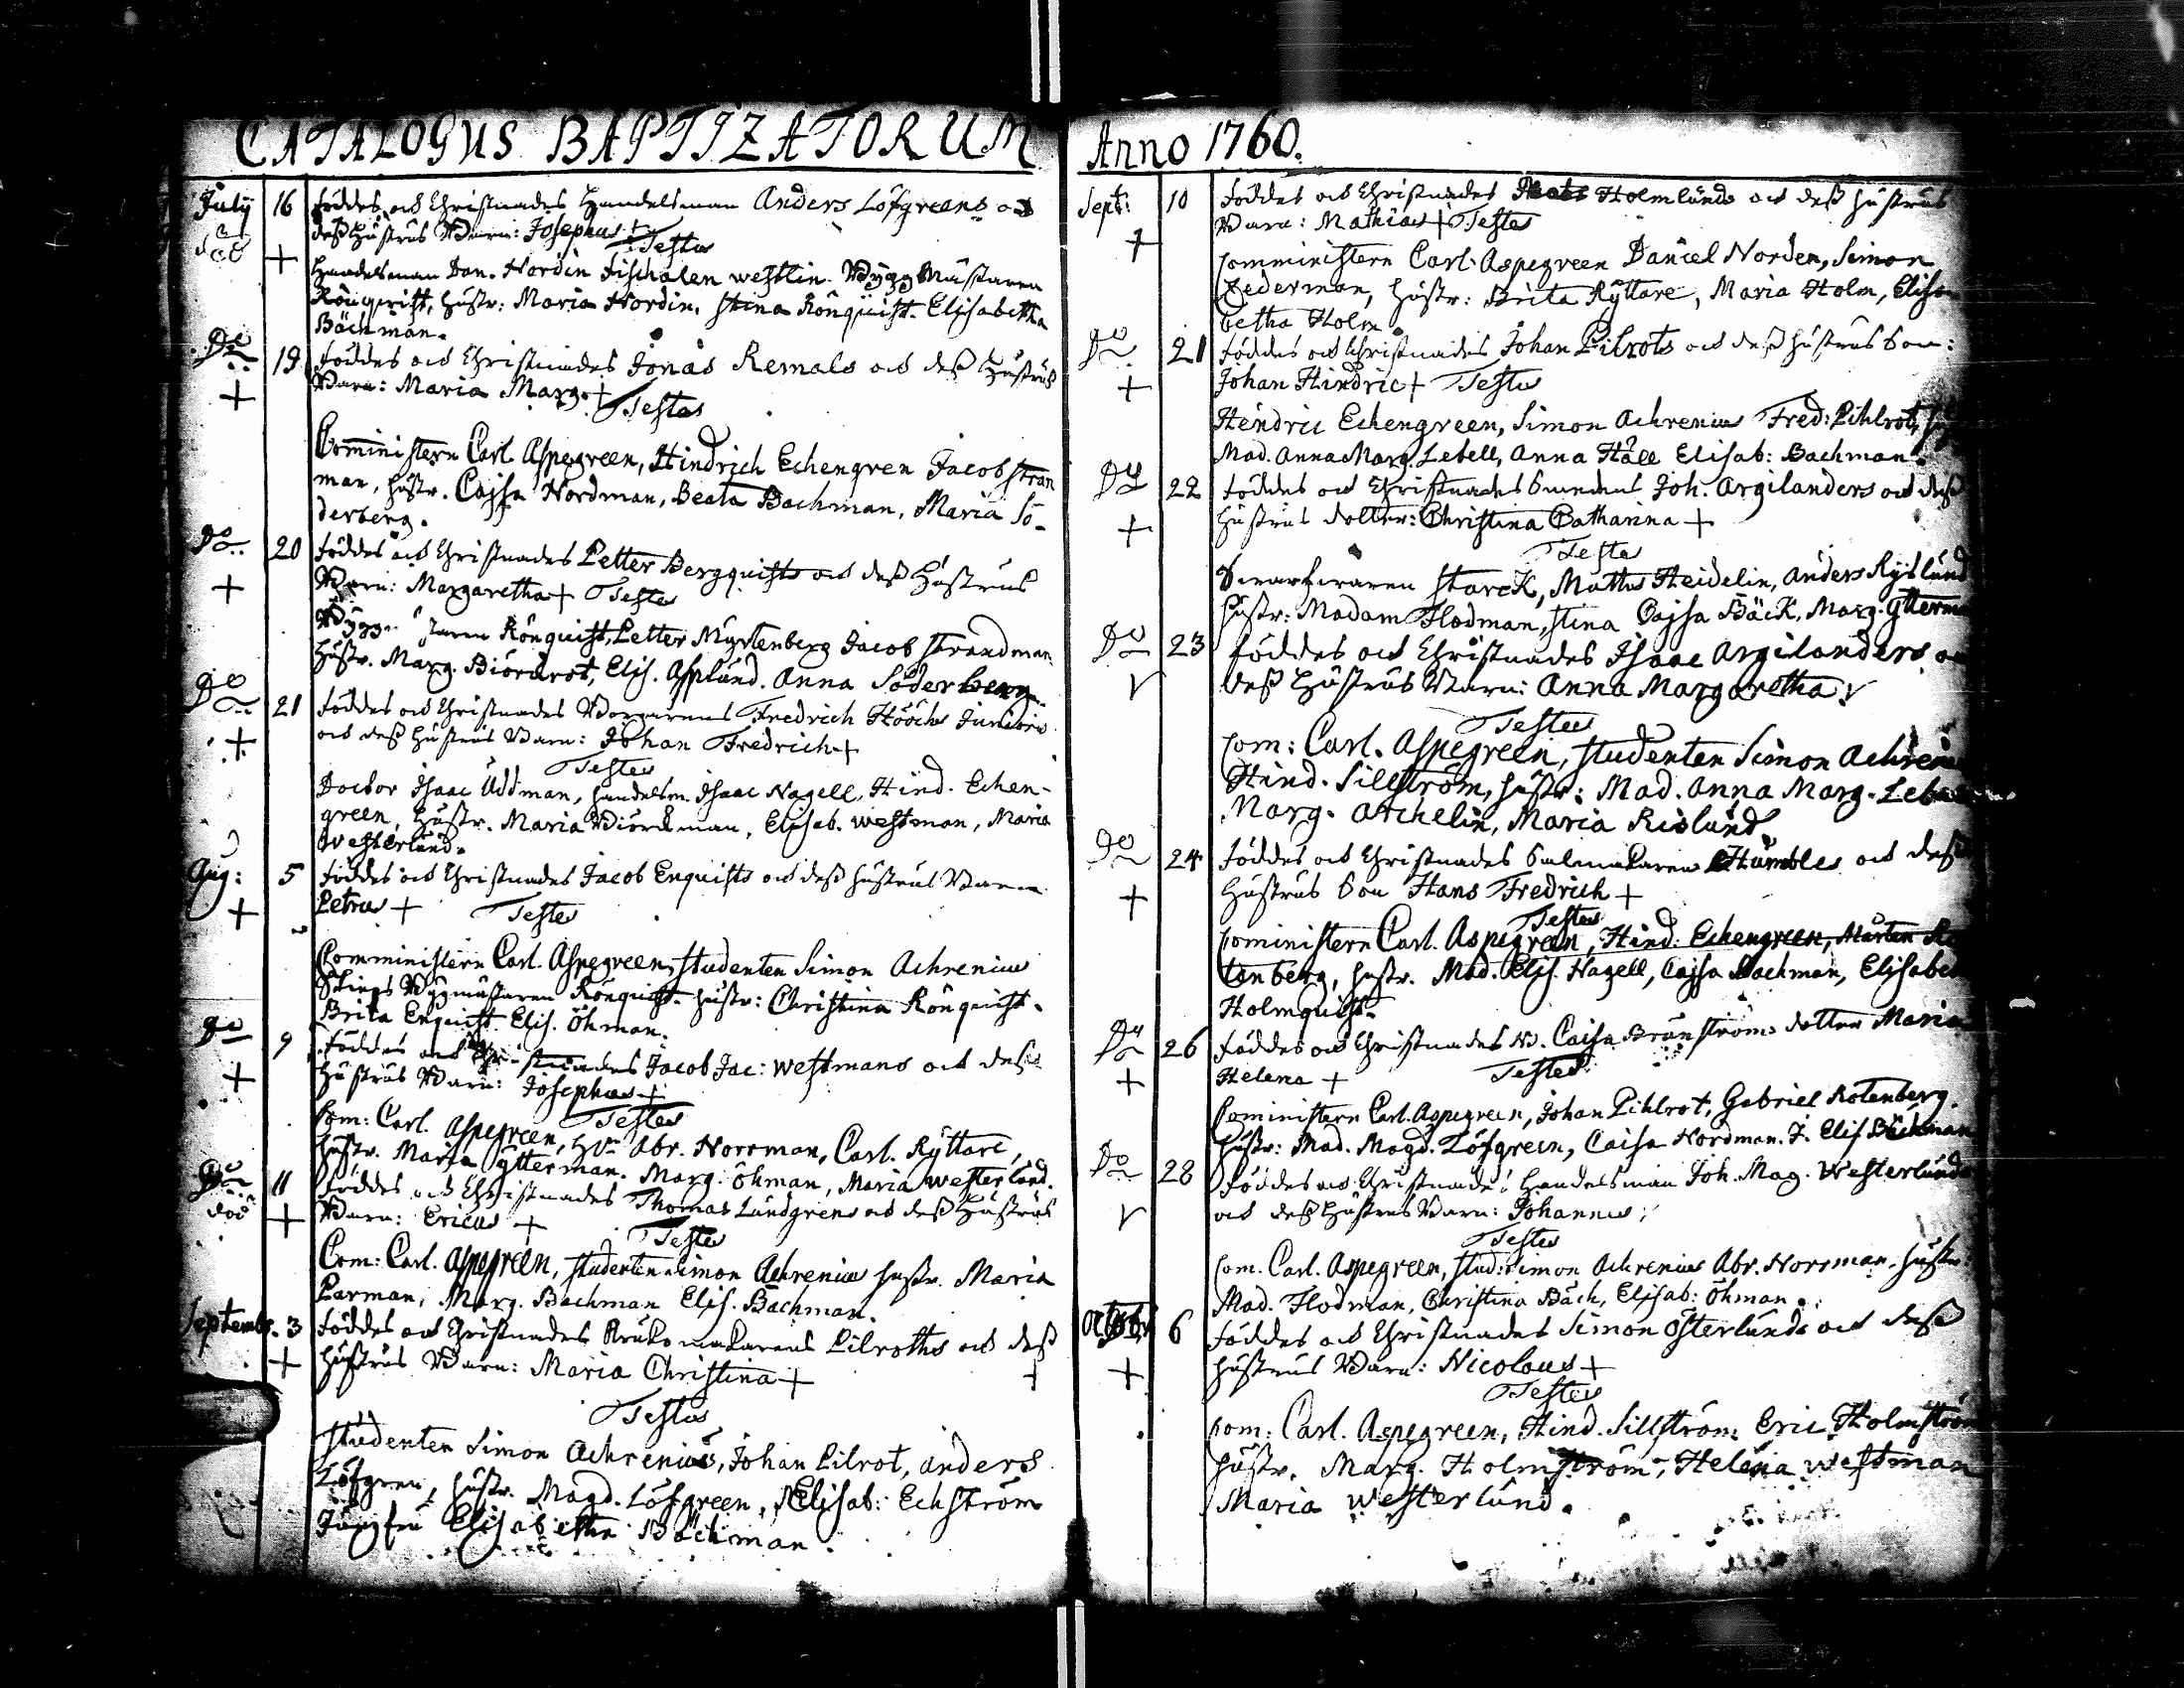 CATALOGUS BAPTIZATORUM
July 16 Föddes och Christnades Handelsman Anders Löfgreens och
död + deß Hustrus Barn: Josephus +
Testes
Handelsman Dan. Nordin Fischalen westlin. Bygg Mästaren
Rönquist, hustr: Maria Nordin, Stina Rönquist. Elisabetha
Bäckman.
Do 19 Föddes och Christnades Jonas Remals och deß Hustrus
+ Barn: Maria Marg. +
Testes
Comministern Carl Aspegreen, Hindrich Echengren Jacob Stran
man, hustr. Cajsa Nordman, Beata Bachman, Maria Sö-
derberg.
Do 20 Föddes och Christnades Petter Bergquists och deß Hustrus
+ Barn: Margaretha + Testes
Rönquist, Petter Myrtenberg Jacob Strandman
Hustr. Marg. Biörkrot, Elis. Asplund. Anna Söderberg.
Do 21 Föddes och Christnades Borgarens Fredrich Hööchs Junioris
+ och deß hustrus Barn: Johan Fredrich +
Testes
Doctor Isaac Uddman, handelsm. Isaac Nagell, Hind. Echen-
green, Hustr. Maria Biörckman, Elisab. westman, Maria
Westerlund.
Aug: 5 Föddes och Christnades Jacob Enquists och deß hustrus Barn
+ Petrus + Testes
Comministern Carl. Aspegreen, Studenten Simon Achrenius
Skieps Bygmästaren Rönquist. hustr: Christina Rönquist.
Brita Enquist. Elis. Öhman.
Do 9 Föddes och Christnades Jacob Jac: westmans och deß
+ Hustrus Barn: Josephus +
Testes
Com: Carl. Aspegreen, Hr Abr. Norrman, Carl. Ryttare,
hustr. Maria Ytterman. Marg. Öhman, Maria westerlund.
Do 11 Föddes och Christnades Thomas Lundgrens och deß Hustrus
död + Barn: Ericus +
Testes
Com: Carl. Aspegreen, Studenten Simon Achrenius hustr. Maria
Parman, Marg. Bachman Elis. Bachman.
Septembr. 3 Föddes och Christnades Krukomakarens Pilroths och deß
+ Hustrus Barn: Maria Christina +
Testes
Studenten Simon Achrenius, Johan Pilrot, anders
Löfgren, hustr. Magd. Löfgreen, Elisab: Echström
Jungfru Elisabetha Bäckman.
Anno 1760.
Sept: 10 Föddes och Christnades Holmlunds och deß hustrus
+ Barn: Mathias + Testes
Comministern Carl Aspegreen Daniel Norden, Simon
Zederman, hustr: Brita Ryttare, Maria Holm, Elisa
betha Holm.
Do 21 Föddes och Christnades Johan Pilrots och deß hustrus Son:
+ Johan Hindric + Testes
Hendric Echengreen, Simon Achrenius Fred: Pihlrot,
Mad. Anna Marg. Lebell, Anna Häll Elisab: Bachman.
Do 22 Föddes och Christnades Smedens Joh. Argilanders och deß
+ hustrus dotter: Christina Catharina +
Testes
Swarfwaren Starck, Matts Heidelin, Anders Ryslund
hustr: Madam Flodman, Stina Cajsa Bäck, Marg. Ytterm
Do 23 Föddes och Christnades Isaac Argilanders
deß Hustrus Barn: Anna Margaretha
Testes
Com: Carl. Aspegreen, Studenten Simon Achreni
Hind. Sillström, hustr: Mad. Anna Marg. Lebell
Marg. Archelin, Maria Rislund.
Do 24 Föddes och Christnades Salmakaren Humbles och deß
+ Hustrus Son Hans Fredrich +
Testes
Cominstern Carl. Aspegreen, Hind. Echengreen, Mårten
tenberg, hustr. Mad. Elis. Nagell, Cajsa Bachman, Elisabet
Holmquist.
Do 26 Föddes och Christnades Caisa Brunströms dotter Maria
+ Helena + Testes
Cominstern Carl. Aspegreen, Johan Pihlrot, Gabriel Rotenberg.
Hustr: Mad. Magd. Löfgreen, Caisa Nordman. J. Elis Bäckman
Do 28 Föddes och Christnades Handelsman Joh. Mag. Westerlunds
och deß Hustrus Barn: Johannes
Testes
Com. Carl. Aspegreen, Stud: Simon Achrenius Abr. Norrman, hustr:
Mad. Flodman, Christina Bäch, Elisab: Öhman.
Octobr 6 Föddes och Christnades Simon Österlunds och deß
+ hustrus Barn: Nicolaus +
Testes
Com: Carl. Aspegreen, Hind. Sillström Eric Holmström
hustr. Marg. Holmström, Helena westman
Maria westerlund.